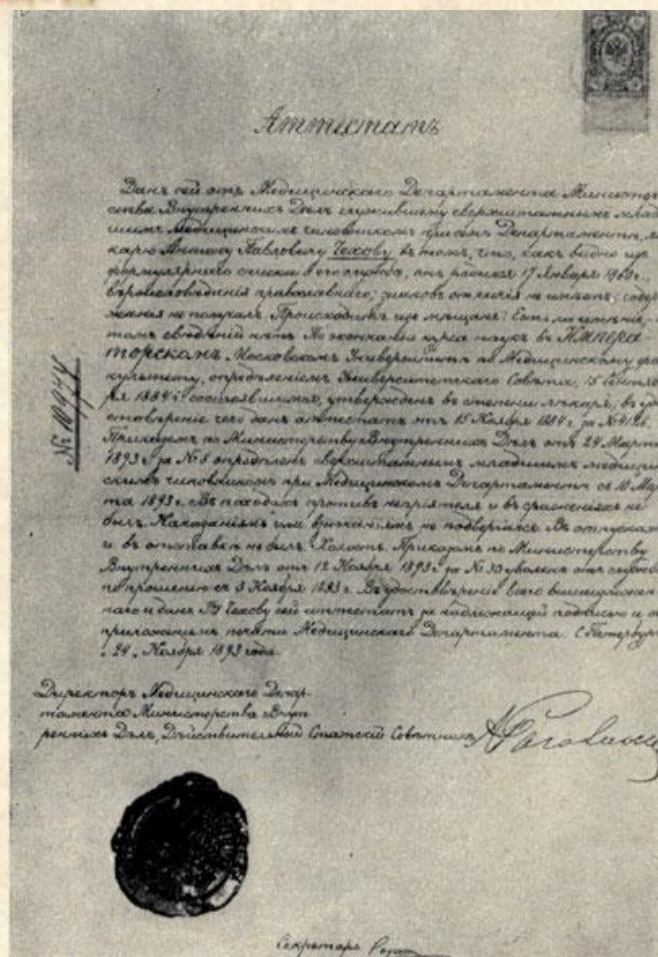 Аттестатъ
Данъ сей отъ Медицинскаго Департамента Министер-
ства Внутреннихъ Дѣлъ служившему сверхштатнымъ млад-
шимъ Медицинскимъ чиновникомъ при семъ Департаментѣ, лѣ-
карю Антону Павловичу Чехову въ томъ, что, какъ видно изъ
формулярнаго списка о его службѣ, онъ родился 17 Января 1860 г.
вѣроисповѣданія православнаго; знаковъ отличія не имѣетъ; содер-
жанія не получалъ. Происходитъ изъ мѣщанъ. Есть ли имѣніе,
томъ свѣдѣній нѣтъ. По окончаніи курса наукъ въ Импера-
торскомъ Московскомъ Университетѣ по Медицинскому фа-
культету, опредѣленіемъ Университетскаго Совѣта, 15 Сентяб-
ря 1884 г. состоявшимся, утвержденъ въ степени лѣкаря, въ удо-
стовѣреніе чего данъ аттестатъ отъ 15 Ноября 1884 г. за № 4126.
Приказомъ по Министерству Внутреннихъ Дѣлъ отъ 24 Марта
1893 г. за № 8 опредѣленъ сверхштатнымъ младшимъ медицин-
скимъ чиновникомъ при Медицинскомъ Департаментѣ съ 10 Мар-
та 1893 г. Въ походахъ противъ непріятеля и въ сраженіяхъ не
былъ. Наказаніямъ или взысканіямъ не подвергался. Въ отпускахъ
и въ отставкѣ не былъ. Холостъ. Приказомъ по Министерству
Внутреннихъ Дѣлъ отъ 12 Ноября 1893 г. за № 30 уволенъ отъ службы
по прошенію съ 3 Ноября 1893 г. Въ удостовѣреніе всего вышеизложен-
наго и данъ Чехову сей аттестатъ за надлежащей подписью и съ
приложеніемъ печати Медицинскаго Департамента. С.Петербургъ
24 Ноября 1893 года.
№ 10974
Директоръ Медицинскаго Депар-
тамента Министерства Внут-
реннихъ Дѣлъ, Дѣйствительный Статскій Совѣтникъ
Секретарь